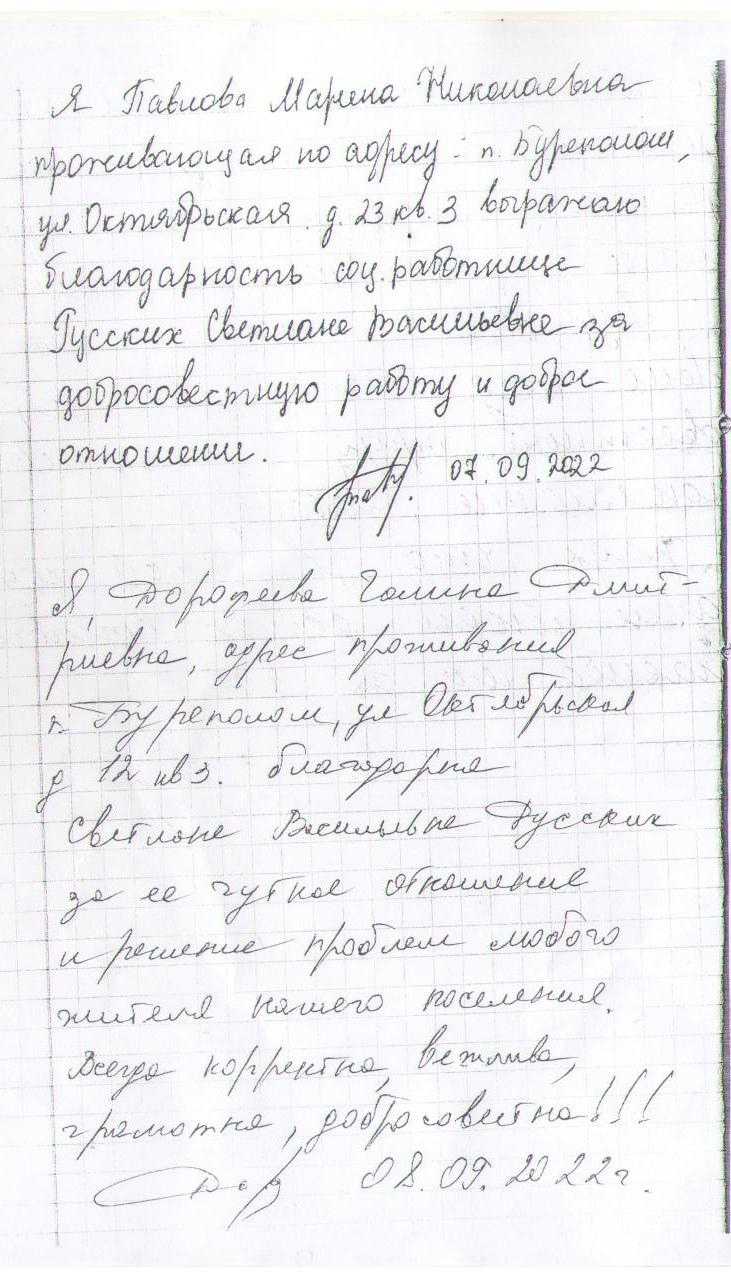 Я Павлова Марина Николаевна
проживающая по адресу: п. Буреполом,
ул. Октябрьская д. 23 кв. 3 выражаю
благодарность соц. работнице
Русских Светлане Васильевне за
добросовестную работу и доброе
отношение.
07.09.2022
Я, Дорофеева Галина Дмит-
риевна, адрес проживания
п. Буреполом, ул Октябрьская
д 12 кв 3. благодарна
Светлане Васильевне Русских
за ее чуткое отношение
и решение проблем любого
жителя нашего поселения.
Всегда корректна, вежлива,
грамотна, добросовестна!!!
Дор 08.09.2022г.